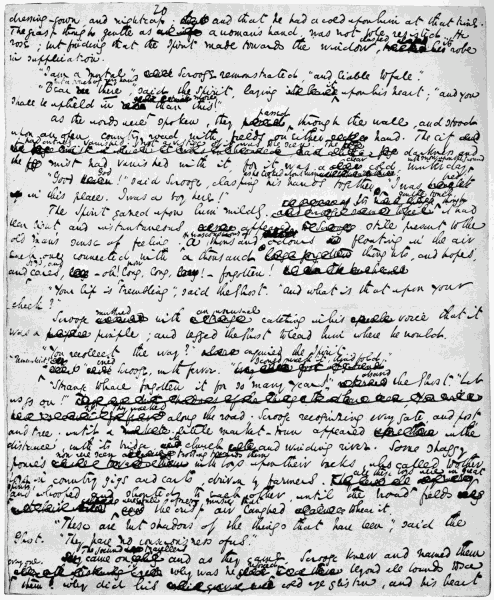 20
dressing-gown, and nightcap; and that he had a cold upon him at that time.
The grasp though gentle as a woman's hand, was not to be resisted. He
rose; but finding that the Spirit made towards the window, clasped its robe
in supplication.
"I am a mortal," Scrooge remonstrated, "and liable to fall."
"Bear but a touch of my hand there," said the Spirit, laying it upon his heart; "and you
shall be upheld in more than this!"
As the words were spoken, they passed through the wall, and stood
upon an open country road, with fields on either hand. The city
had entirely vanished. Not a vestige of it was to be seen. The darkness and
the mist had vanished with it, for it was a clear cold winter day
with snow upon the ground
"Good Heaven!" said Scrooge, clasping his hands together, as he looked about him "I was bred
in this place. I was a boy here!"
The Spirit gazed upon him mildly. Its gentle touch, though it had
been light and instantaneous, appeared still present to the
old man's sense of feeling. He was conscious of a thousand odours floating in the air
each one connected with a thousand thoughts, and hopes,
and joys, and cares, long, long, forgotten!
"Your lip is trembling," said the Ghost. "And what is that upon your
cheek?"
Scrooge muttered with an unusual catching in his voice that it
was a pimple; and begged the Ghost to lead him where he would.
"You recollect the way?" inquired the Spirit.
"Remember it!" cried Scrooge, with fervor. "I could walk it blindfold."
"Strange to have forgotten it for so many years!" the Ghost "Let
us go on!"
They walked along the road. Scrooge recognizing every gate, and post
and tree until a little market-town appeared in the
distance, with its bridge its church and winding river. Some shaggy
ponies now were seen trotting towards them with boys upon their backs, who called to other
boys in country gigs and carts driven by farmers. All these boys were in great spirits
and shouted to each other, until the broad fields were
so full of merry music, that the crisp air laughed to hear it.
"These are but shadows of the things that have been," said the
Ghost. "They have no consciousness of us."
The jocund travellers came on; and as they came, Scrooge knew and named them
every one. Why was he rejoiced beyond all bounds to see
them! Why did his cold eye glisten, and his heart